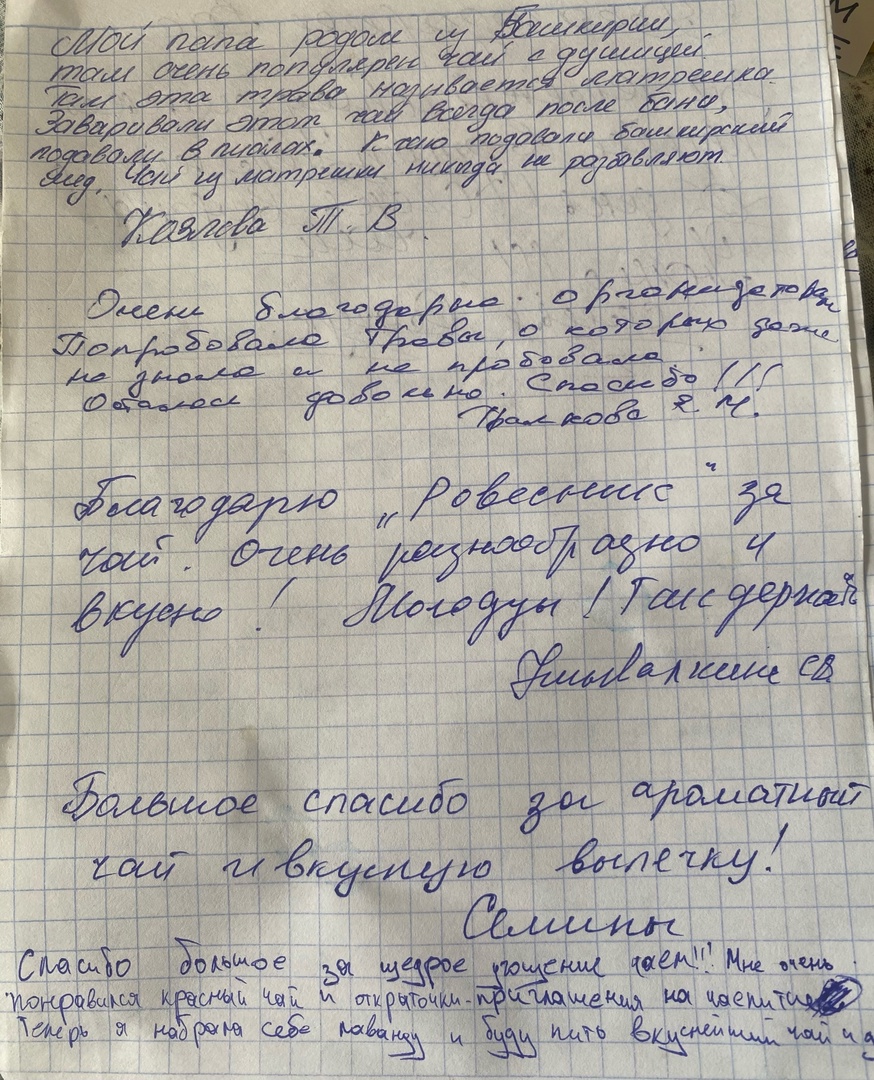 Мой папа родом из Башкирии,
там очень популярен чай с душицей.
Там эта трава называется матрешка.
Заваривали этот чай всегда после бани,
подавали в пиалах. К чаю подовали башкирский
мед. Чай из матрешки никогда не разбавляют
Козлова Т. В.
Очень благодарна организаторам
Попробовала травы, о которых даже
не знала и не пробовала.
Осталась довольна. Спасибо!!!
Благодарю „Ровесник" за
чай. Очень разнообразно и
вкусно! Молодцы! Так держать
С.В.
Большое спасибо за ароматный
чай и вкусную выпечку!
Семины
Спасибо большое за щедрое угощение чаем!!! Мне очень
понравился красный чай и открыточки-приглашения на чаепитие
Теперь я набрала себе лаванду и буду пить вкуснейший чай и д